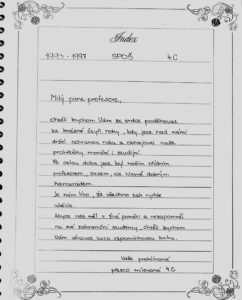 Index
1993 - 1998 SPOŠ 4.C
Milý pane profesore,
chtěli bychom Vám ze srdce poděkovat
za krásné čtyři roky, kdy jste nad námi
držel ochranou ruku a obhajoval naše
problémy morální i studijní.
Po celou dobu jste byl naším třídním
profesorem, rádcem, ale hlavně dobrým
kamarádem.
Je nám líto, že všechno tak rychle
uběhlo.
Abyste nás měl v živé paměti a nezapomněl
na své zahraniční studenty, chtěli bychom
Vám věnovat tuto vzpomínkovou knihu.
Vaše problémová
přesto milovaná 4.C